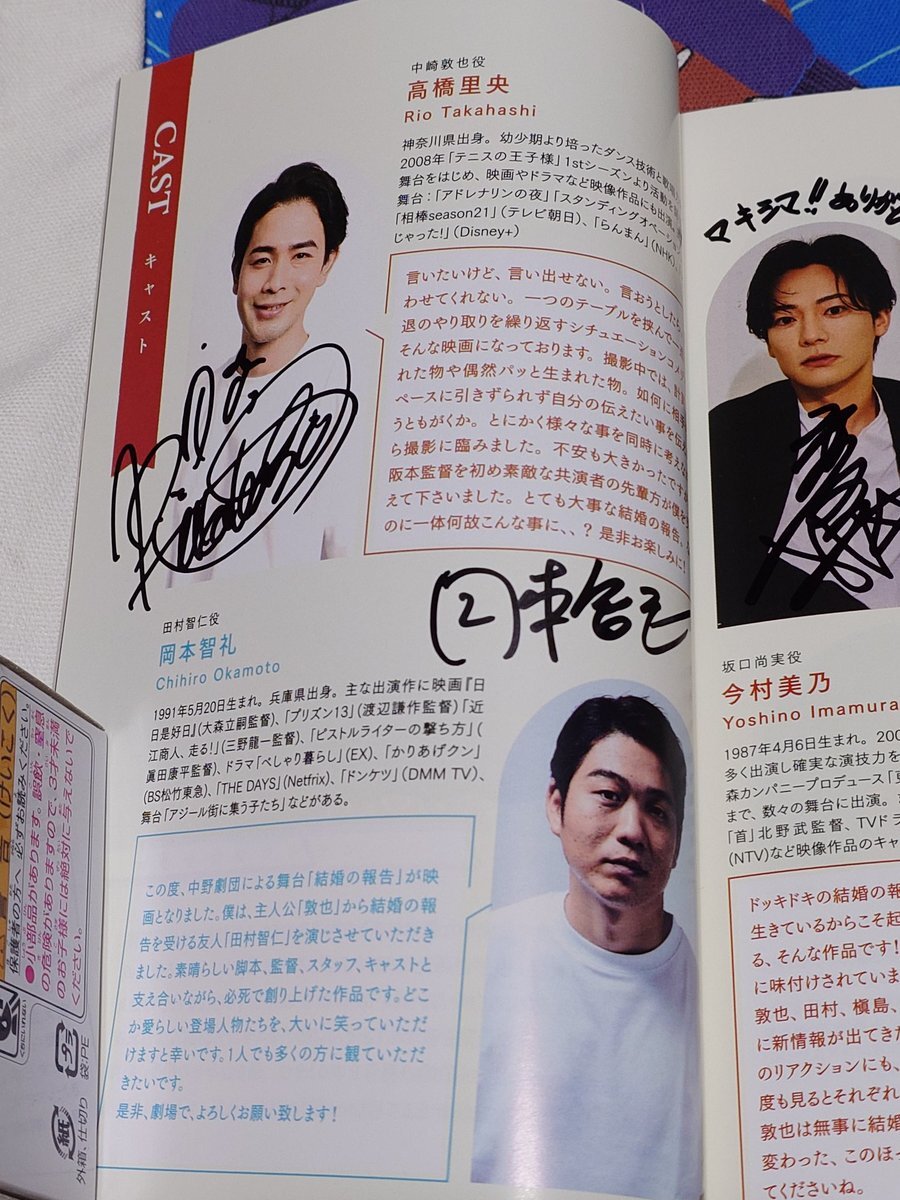 CAST
キャスト
中崎敦也役
高橋里央
Rio Takahashi
神奈川県出身。幼少期より培ったダンス技術と歌唱
2008年「テニスの王子様」1stシーズンより活動を
舞台をはじめ、映画やドラマなど映像作品にも出演
舞台：「アドレナリンの夜」「スタンディングオベーション
「相棒season21」（テレビ朝日）、「らんまん」（NHK）
じゃった!」（Disney+）
言いたいけど、言い出せない。言おうとしたら
わせてくれない。一つのテーブルを挟んで一
退のやり取りを繰り返すシチュエーションコメ
そんな映画になっております。撮影中では、計
れた物や偶然パッと生まれた物。如何に相手
ペースに引きずられず自分の伝えたい事を伝え
うともがくか。とにかく様々な事を同時に考えな
ら撮影に臨みました。不安も大きかったですが
阪本監督を初め素敵な共演者の先輩方が僕を支
えて下さいました。とても大事な結婚の報告、な
のに一体何故こんな事に、、？是非お楽しみに!
田村智仁役
岡本智礼
Chihiro Okamoto
1991年5月20日生まれ。兵庫県出身。主な出演作に映画『日
日是好日』（大森立嗣監督）、「プリズン13」（渡辺謙作監督）「近
江商人、走る!」（三野龍一監督）、「ピストルライターの撃ち方」（
眞田康平監督）、ドラマ「べしゃり暮らし」（EX）、「かりあげクン」
（BS松竹東急）、「THE DAYS」（Netfrix）、「ドンケツ」（DMM TV）、
舞台「アジール街に集う子たち」などがある。
この度、中野劇団による舞台「結婚の報告」が映
画となりました。僕は、主人公「敦也」から結婚の報
告を受ける友人「田村智仁」を演じさせていただき
ました。素晴らしい脚本、監督、スタッフ、キャストと
支え合いながら、必死で創り上げた作品です。どこ
か愛らしい登場人物たちを、大いに笑っていただ
けますと幸いです。1人でも多くの方に観ていただ
きたいです。
是非、劇場で、よろしくお願い致します!
マキシマ!!ありがと
坂口尚実役
今村美乃
Yoshino Imamura
1987年4月6日生まれ。200
多く出演し確実な演技力を
森カンパニープロデュース「
まで、数々の舞台に出演。
「首」北野武監督、TVドラ
（NTV）など映像作品のキャ
ドッキドキの結婚の報
生きているからこそ起
る、そんな作品です!
に味付けされていま
敦也、田村、槇島、
に新情報が出てきた
のリアクションにも、
度も見るとそれぞれ
敦也は無事に結婚
変わった、このほっ
てくださいね。
（けいこく）
保護者の方へ 必ずお読みください。
●小部品があります。誤飲、窒息
の危険がありますので、3才未満
のお子様には絶対に与えないで
ください。
くちにいれない
プラ
袋:PE
紙
外箱、仕切り